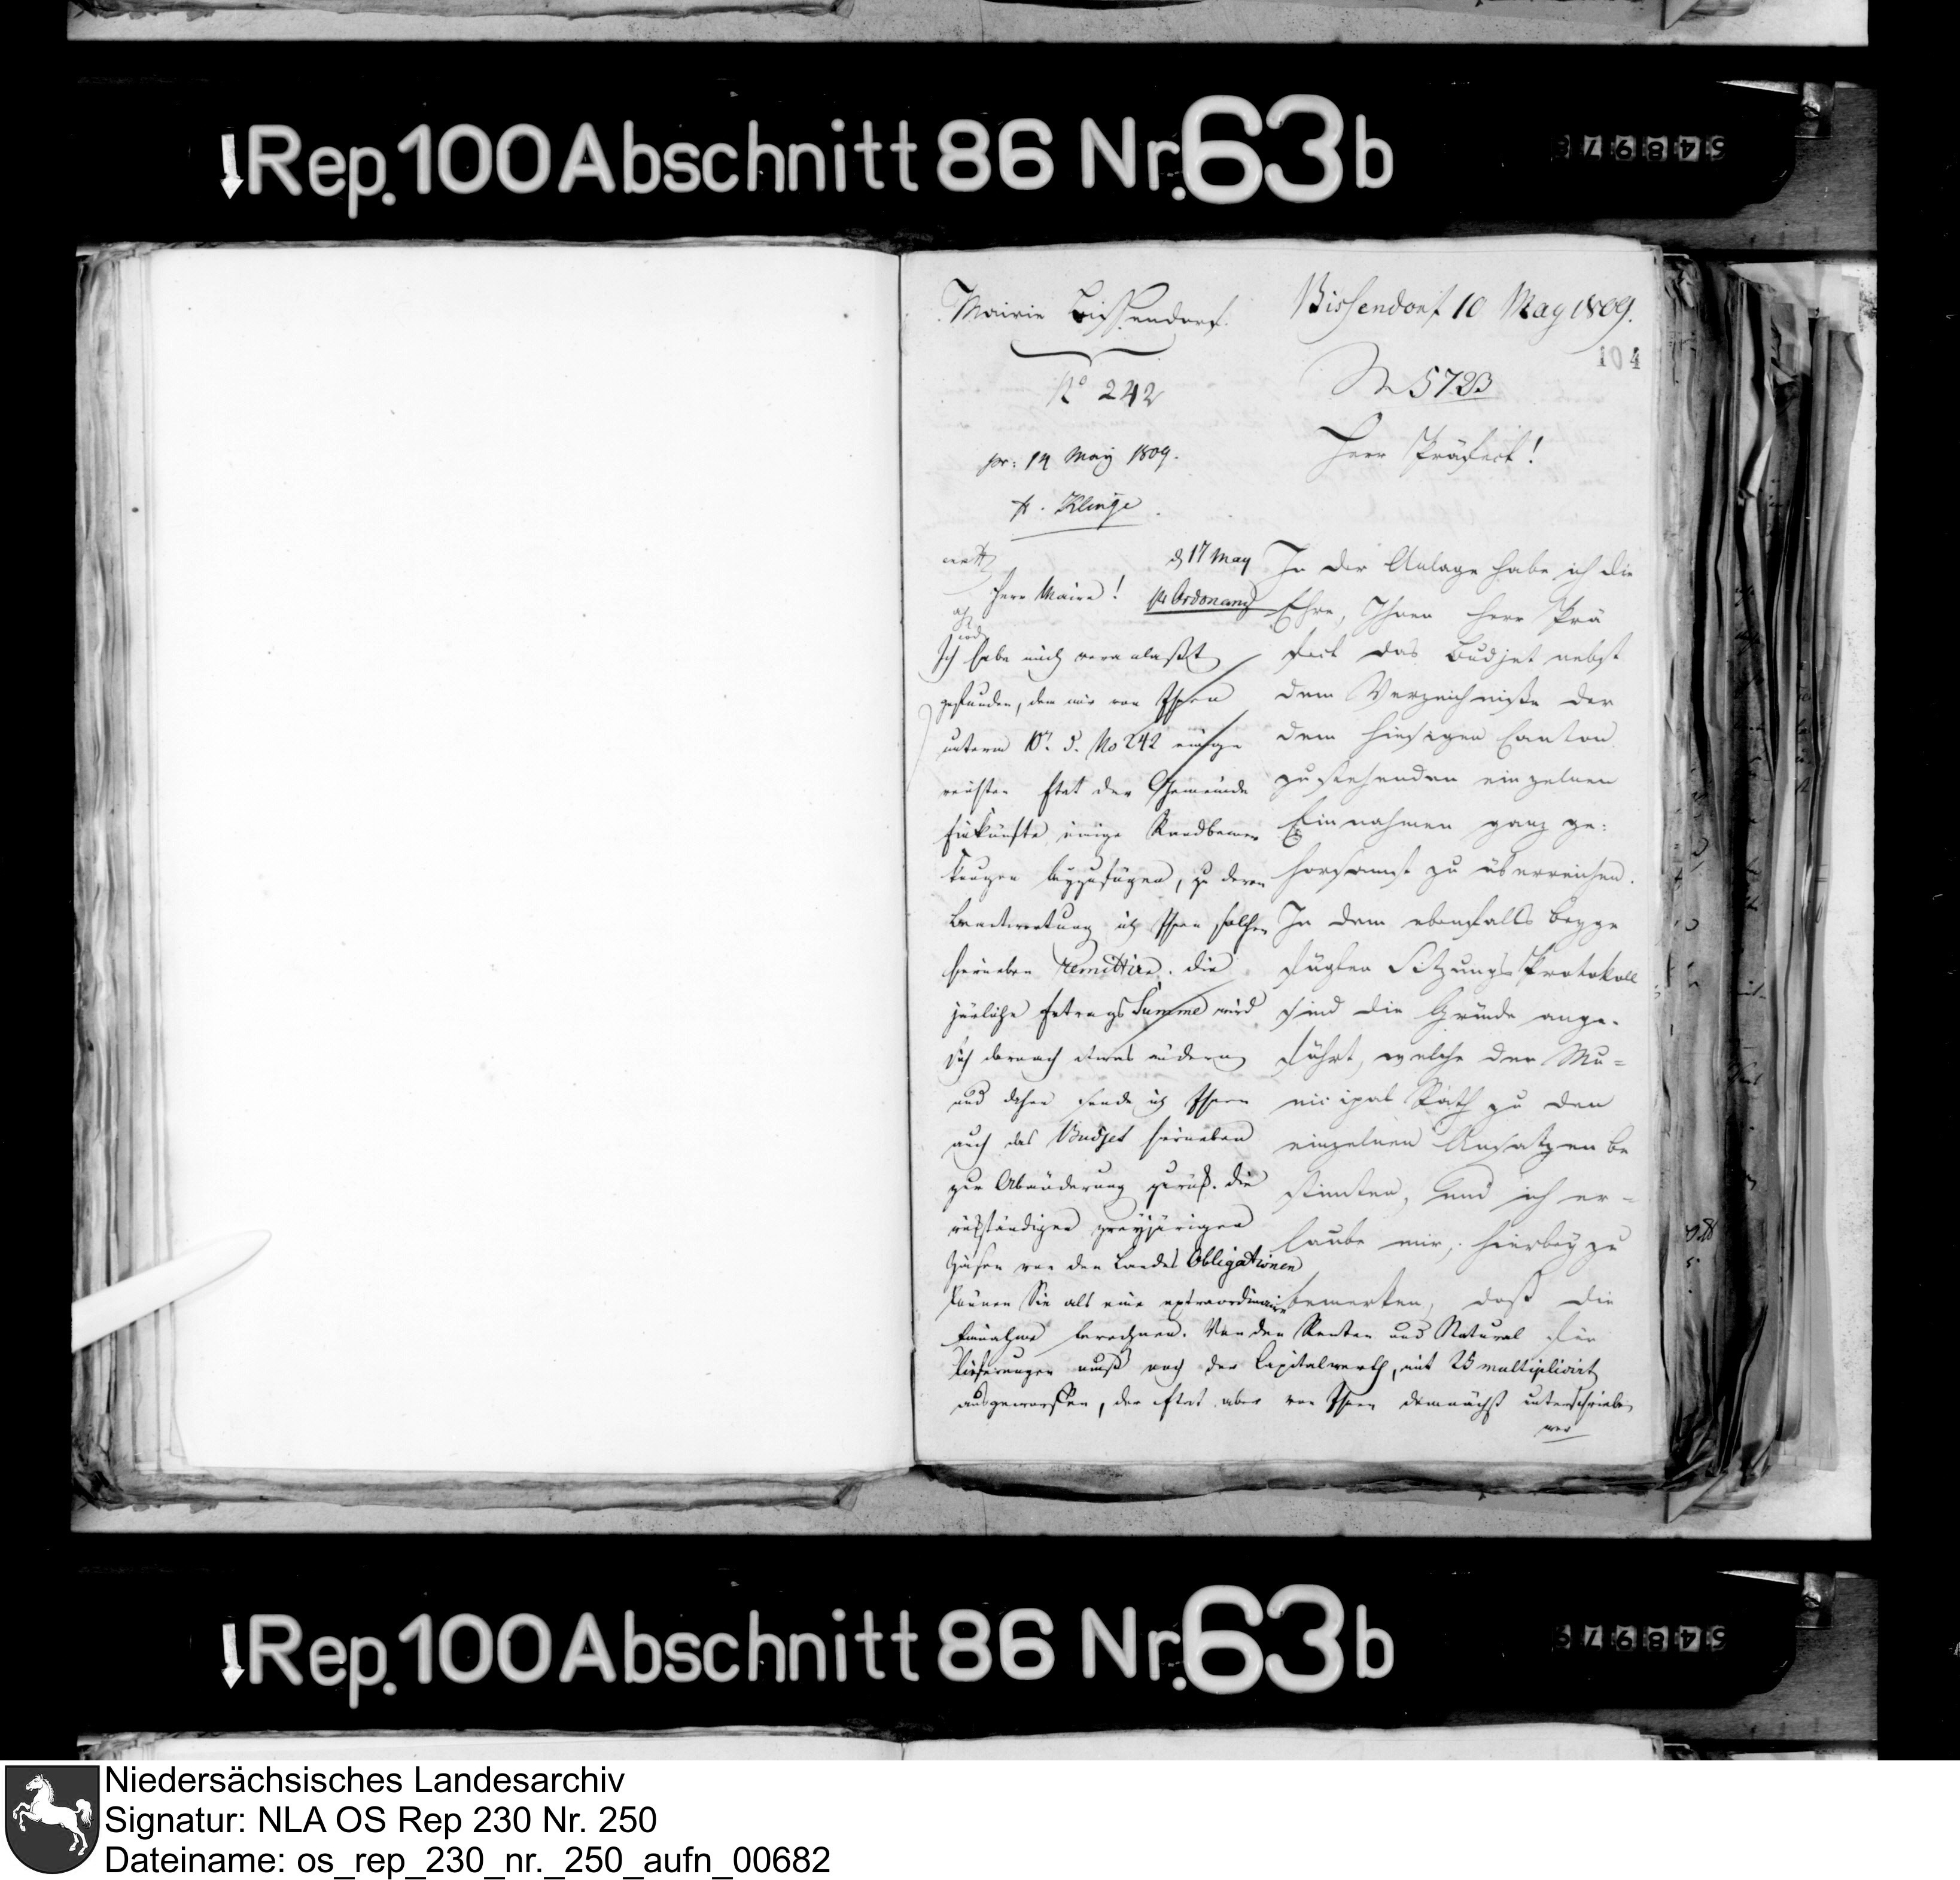 Rep. 100 Abschnitt 86 Nr. 63 b
Mairie Bissendorf.
No 242
pr: 14 May 1809.
Klinge
Bissendorf 10 May 1809.
104
5723
Herr Präfect!
In der Anlage habe ich die
Ehre, Ihnen Herr Prä
fect das Budjet nebst
dem Verzeichniße der
dem hiesigen Canton
zustehenden einzelnen
Einnahmen ganz ge:
horsamst zu überreichen.
In dem ebenfalls beyge
fügten Sitzungs Protokoll
sind die Gründe ange-
führt, welche der Mu=
nicipal Rath zu den
einzelnen Ansatzen be
stimten, und ich er=
laube mir, hierbey zu
bemerken, daß die
für
d 17 May
Herr Maire! pr Ordonanz
Ich habe mich veranlaßt
gefunden, dem mir von Ihnen
unterm 10t. d. No 242 einge
reichten Etat der Gemeinde
Einkünfte einige Randbemer
kungen beyzufügen, zu deren
Beantwortung ich Ihnen solchen
hierneben remittire. Die
järliche Ertrags Summe wird
sich darnach etwas ändern
und daher sende ich Ihnen
auch das Budjet hierneben
zur Abänderung zurük. Die
rükständigen zweyjärigen
Zinsen von den Landes Obligationen
können Sie als eine extraordinaire
Einnahme berechnen. Von den Renten und Natural
lieferungen muß noch der Capitalwerth, mit 25 multiplicirt
ausgeworffen, der Etat aber von Ihnen demnächst unterschrieben
wer
Rep. 100 Abschnitt 86 Nr. 63 b
Niedersächsisches Landesarchiv
Signatur: NLA OS Rep 230 Nr. 250
Dateiname: os_rep_230_nr._250_aufn_00682